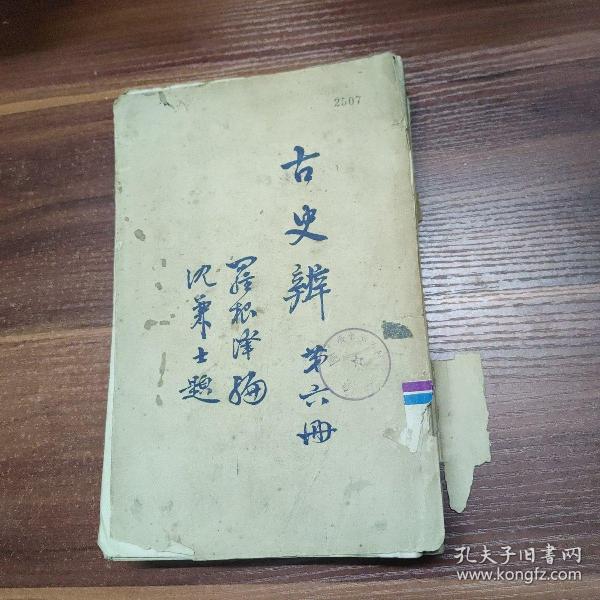 2507
古史辨 第六冊
羅根澤編
沈兼士題
孔夫子旧书网
www.kongfz.com